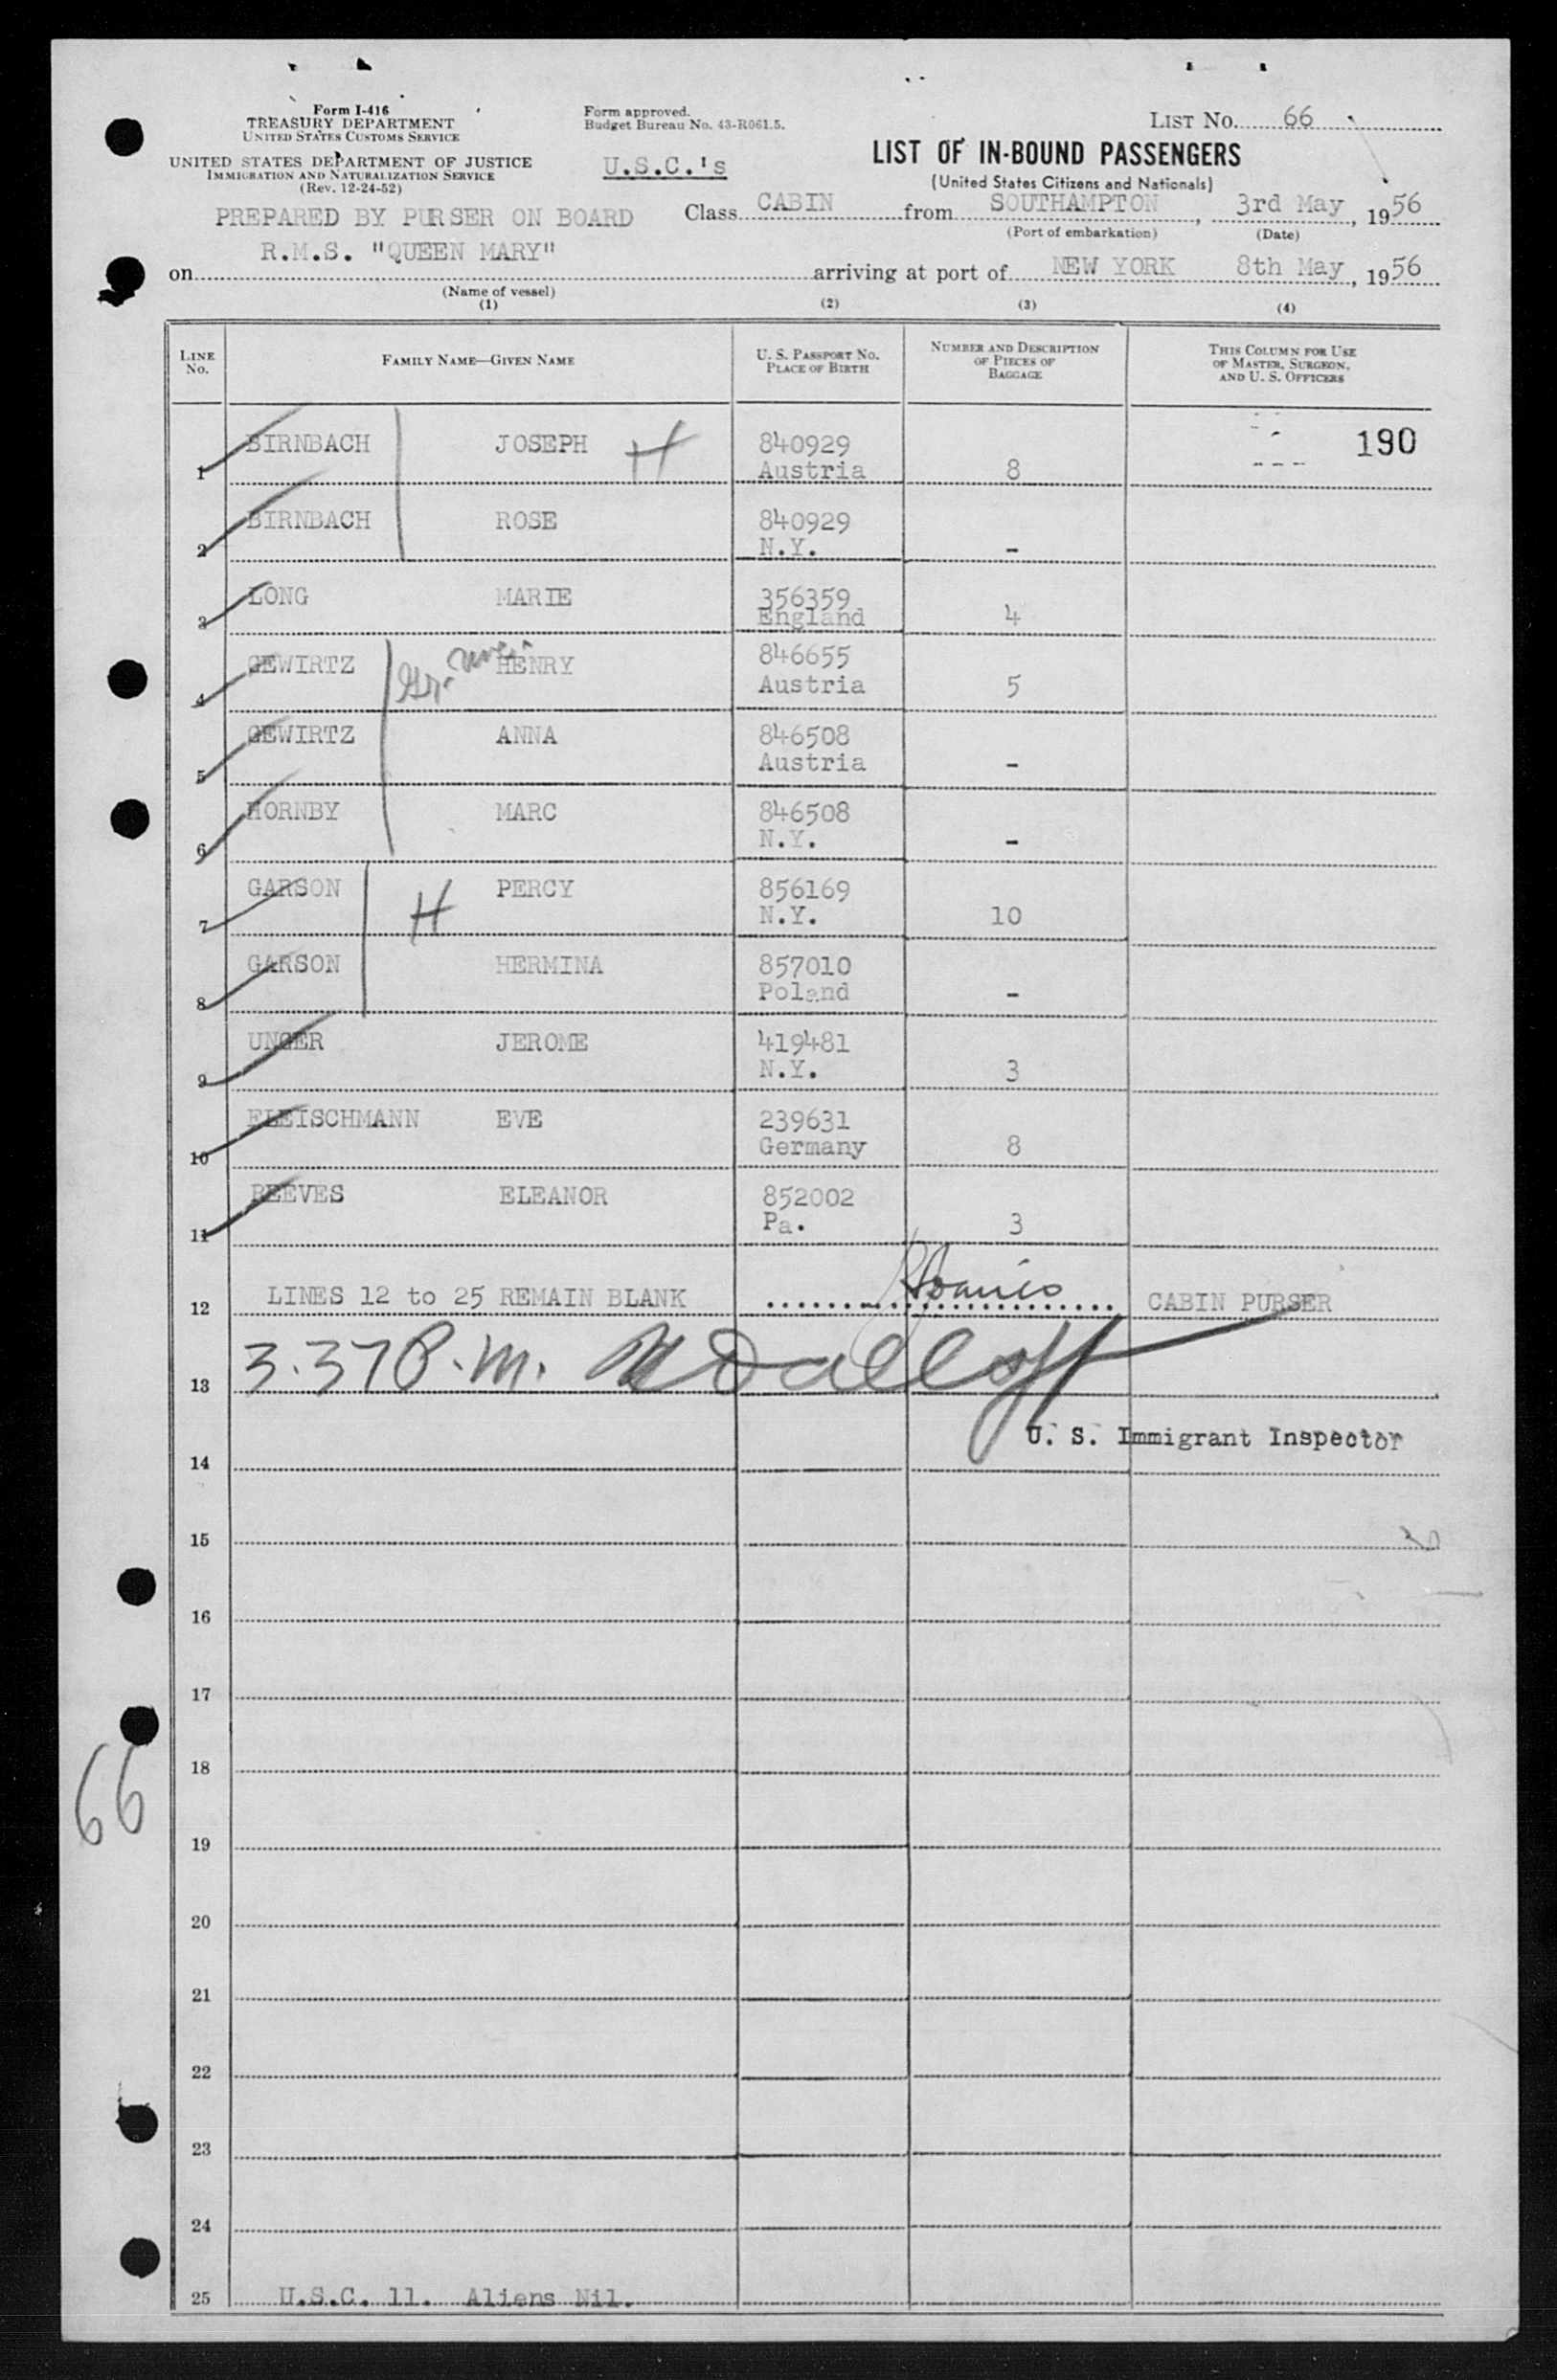 Form I-416
TREASURY DEPARTMENT
UNITED STATES CUSTOMS SERVICE
UNITED STATES DEPARTMENT OF JUSTICE
IMMIGRATION AND NATURALIZATION SERVICE
(Rev. 12-24-52)
Form approved.
Budget Bureau No. 43-R061.5.
U.S.C.'s
LIST NO. 66
LIST OF IN-BOUND PASSENGERS
(United States Citizens and Nationals)
PREPARED BY PURSER ON BOARD Class CABIN from SOUTHAMPTON, 3rd May, 1956
(Port of embarkation) (Date)
on R.M.S. "QUEEN MARY" arriving at port of NEW YORK 8th May, 1956
(Name of vessel)
(1) (2) (3) (4)
LINE NO. FAMILY NAME—GIVEN NAME U. S. PASSPORT NO. PLACE OF BIRTH NUMBER AND DESCRIPTION OF PIECES OF BAGGAGE THIS COLUMN FOR USE OF MASTER, SURGEON, AND U. S. OFFICERS
BIRNBACH JOSEPH H 840929 190
1 Austria 8
BIRNBACH ROSE 840929
2 N.Y. -
LONG MARIE 356359
3 England 4
GEWIRTZ HENRY 846655
4 Austria 5
GEWIRTZ ANNA 846508
5 Austria -
HORNBY MARC 846508
6 N.Y. -
GARSON H PERCY 856169
7 N.Y. 10
GARSON HERMINA 857010
8 Poland -
UNGER JEROME 419481
9 N.Y. 3
FLEISCHMANN EVE 239631
10 Germany 8
REEVES ELEANOR 852002
11 Pa. 3
12 LINES 12 to 25 REMAIN BLANK CABIN PURSER
13 3.37 P.M.
U. S. Immigrant Inspector
14
15
16
17
18
66
19
20
21
22
23
24
25 U.S.C. 11. Aliens Nil.